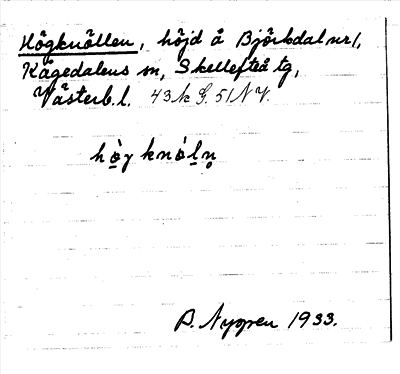 Högknöllen, höjd å Björkdal nr 1,
Kågedalens sn, Skellefteå tg,
Västerb. l. 43 k G. 51 N Y.
hò̤y knòḷn̥
B. Nygren 1933.